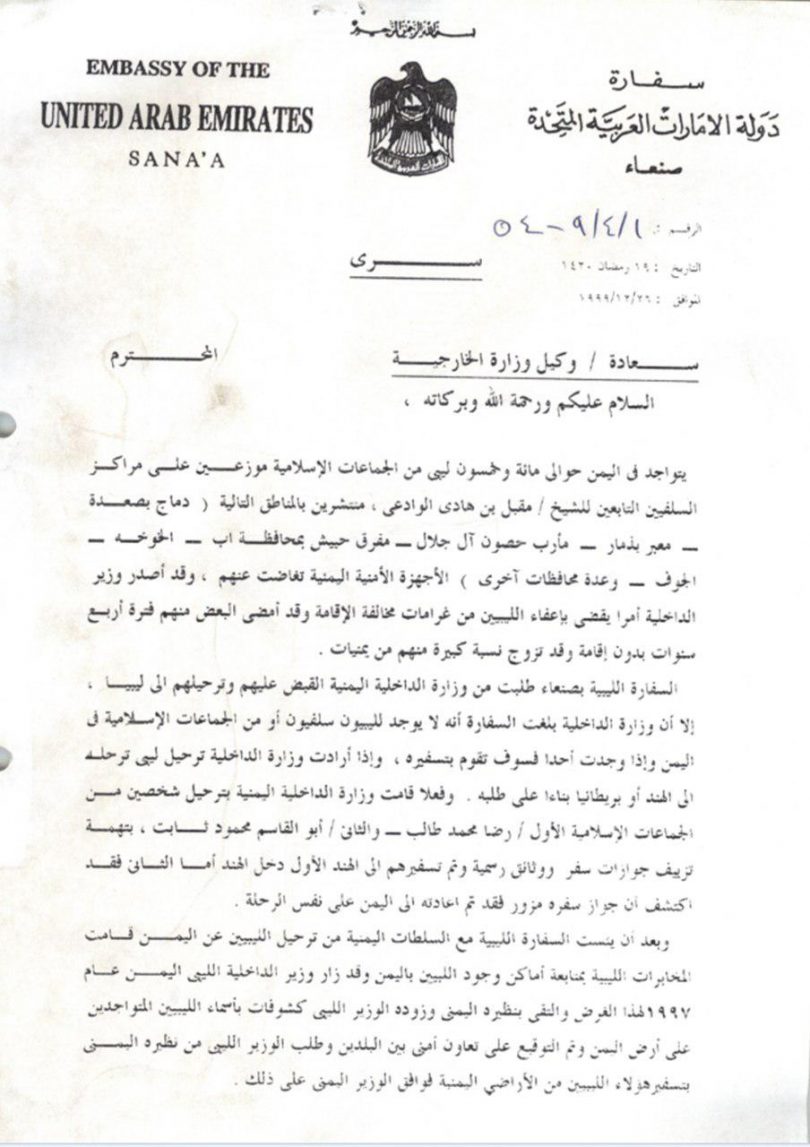 بسم الله الرحمن الرحيم
EMBASSY OF THE
UNITED ARAB EMIRATES
SANA'A
سفارة
دولة الامارات العربية المتحدة
صنعاء
الرقم : ٩/٤/١ – ٥٤
التاريخ : ١٩ رمضان ١٤٢٠
الموافق : ١٩٩٩/١٢/٢٦
سرى
سعادة / وكيل وزارة الخارجية المحترم
السلام عليكم ورحمة الله وبركاته ،
يتواجد فى اليمن حوالى مائة وخمسون ليبى من الجماعات الإسلامية موزعين على مراكز
السلفيين التابعين للشيخ / مقبل بن هادى الوادعى ، منتشرين بالمناطق التالية ( دماج بصعدة
– معبر بذمار – مأرب حصون آل جلال – مفرق حبيش بمحافظة اب – الخوخه –
الجوف – وعدة محافظات آخرى ) الأجهزة الأمنية اليمنية تغاضت عنهم ، وقد أصدر وزير
الداخلية أمرا يقضى بإعفاء الليبيين من غرامات مخالفة الإقامة وقد أمضى البعض منهم فترة أربع
سنوات بدون إقامة وقد تزوج نسبة كبيرة منهم من يمنيات .
السفارة الليبية بصنعاء طلبت من وزارة الداخلية اليمنية القبض عليهم وترحيلهم الى ليبيا ،
إلا أن وزارة الداخلية بلغت السفارة أنه لا يوجد لليبيون سلفيون أو من الجماعات الإسلامية فى
اليمن وإذا وجدت أحدا فسوف تقوم بتسفيره ، وإذا أرادت وزارة الداخلية ترحيل ليبى ترحله
الى الهند أو بريطانيا بناءا على طلبه . وفعلا قامت وزارة الداخلية اليمنية بترحيل شخصين من
الجماعات الإسلامية الأول / رضا محمد طالب – والثانى / أبو القاسم محمود ثابت ، بتهمة
تزييف جوازات سفر ووثائق رسمية وتم تسفيرهم الى الهند الأول دخل الهند أما الثانى فقد
اكتشف أن جواز سفره مزور فقد تم اعادته الى اليمن على نفس الرحلة .
وبعد أن يئست السفارة الليبية مع السلطات اليمنية من ترحيل الليبيين عن اليمن قامت
المخابرات الليبية بمتابعة أماكن وجود الليبين باليمن وقد زار وزير الداخلية الليبى اليمن عام
١٩٩٧ لهذا الغرض والتقى بنظيره اليمنى وزوده الوزير الليبى كشوفات بأسماء الليبين المتواجدين
على أرض اليمن وتم التوقيع على تعاون أمنى بين البلدين وطلب الوزير الليبى من نظيره اليمنى
بتسفيرهؤلاء الليبين من الأراضي اليمنية فوافق الوزير اليمنى على ذلك .